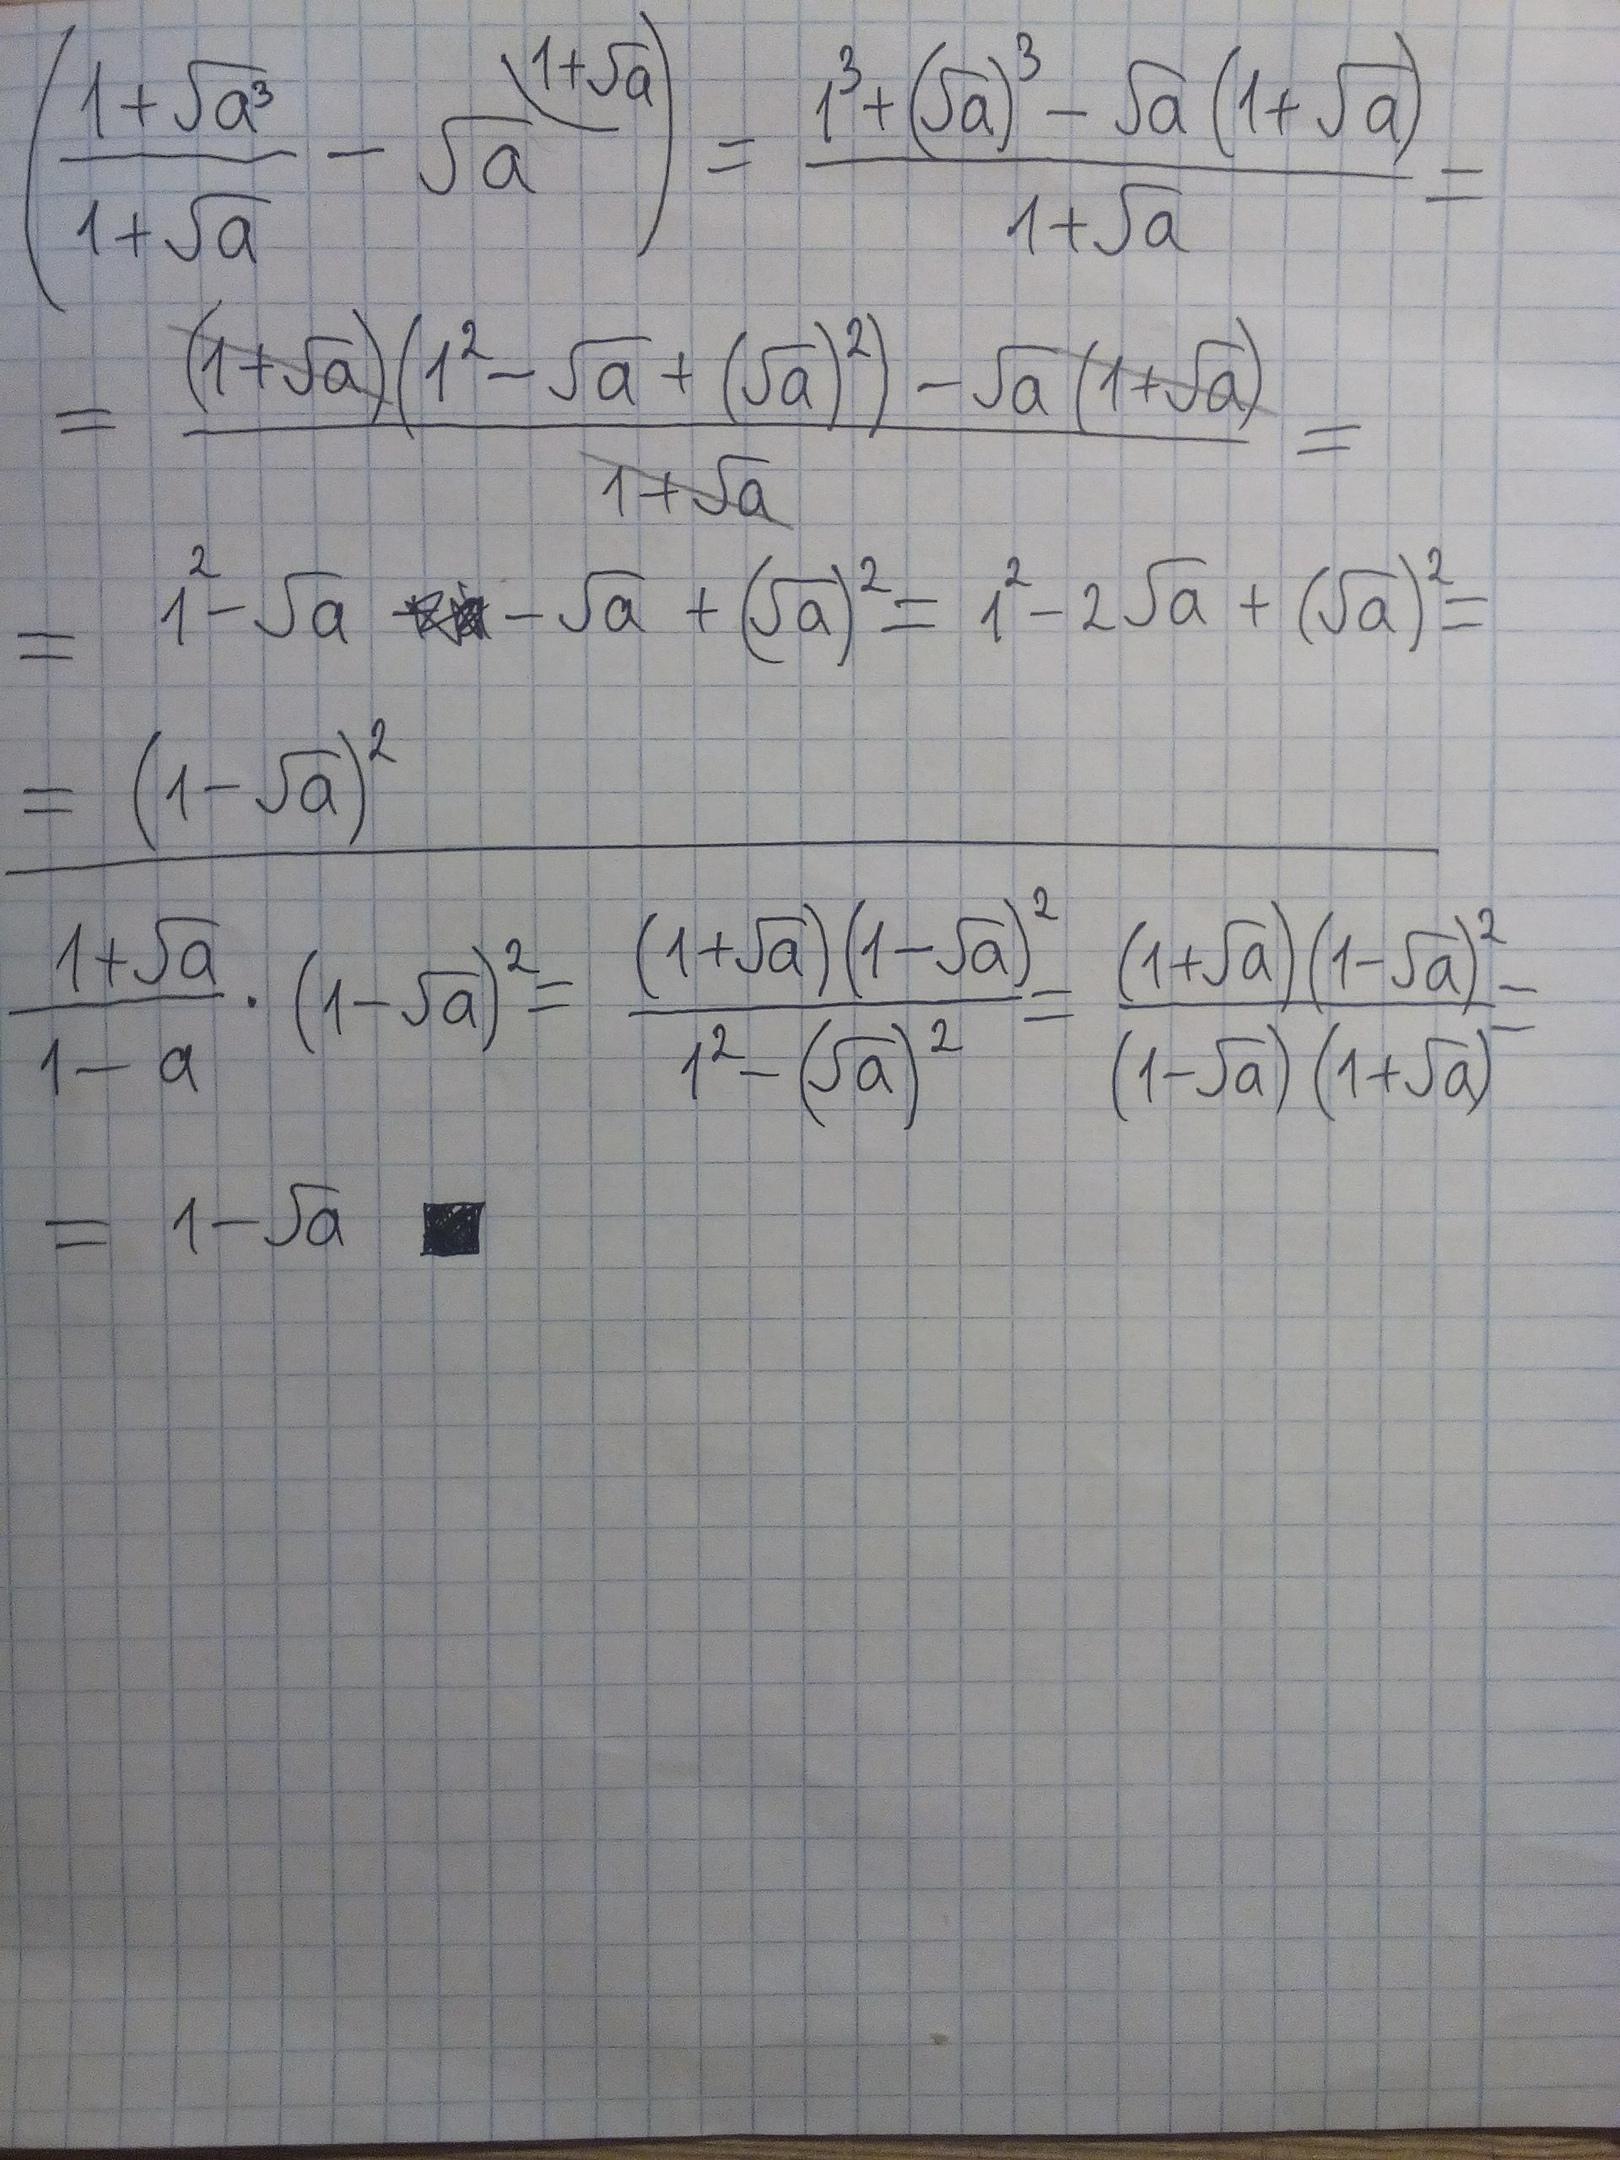 (1+√a³/1+√a − √a^(1+√a)) = 1³+(√a)³−√a(1+√a)/1+√a =
= (1+√a)(1²−√a+(√a)²)−√a(1+√a)/1+√a =
= 1²−√a −√a +(√a)² = 1²−2√a+(√a)² =
= (1−√a)²
1+√a/1−a · (1−√a)² = (1+√a)(1−√a)²/1²−(√a)² = (1+√a)(1−√a)²/(1−√a)(1+√a) =
= 1−√a ■